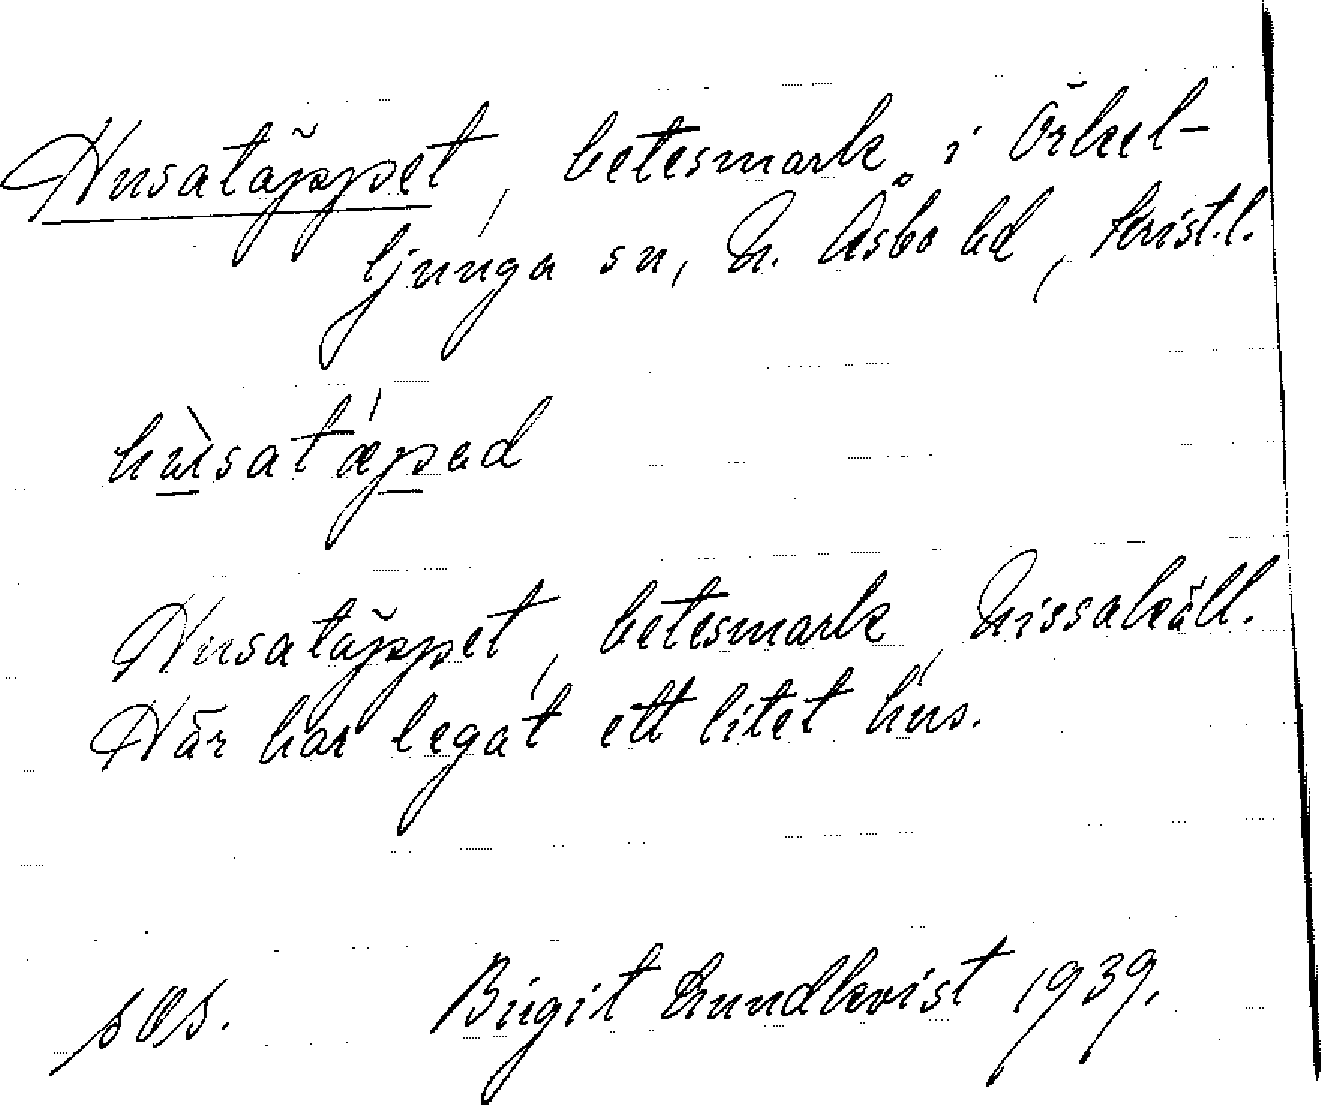 Husatäppet, betesmark i Örkel-
ljunga sn, N. Åsbo hd, Krist.l.
hùsatǽpad
Husatäppet, betesmark, Nissakäll.
Här har legat ett litet hus.
sos. Birgit Lundkvist 1939.